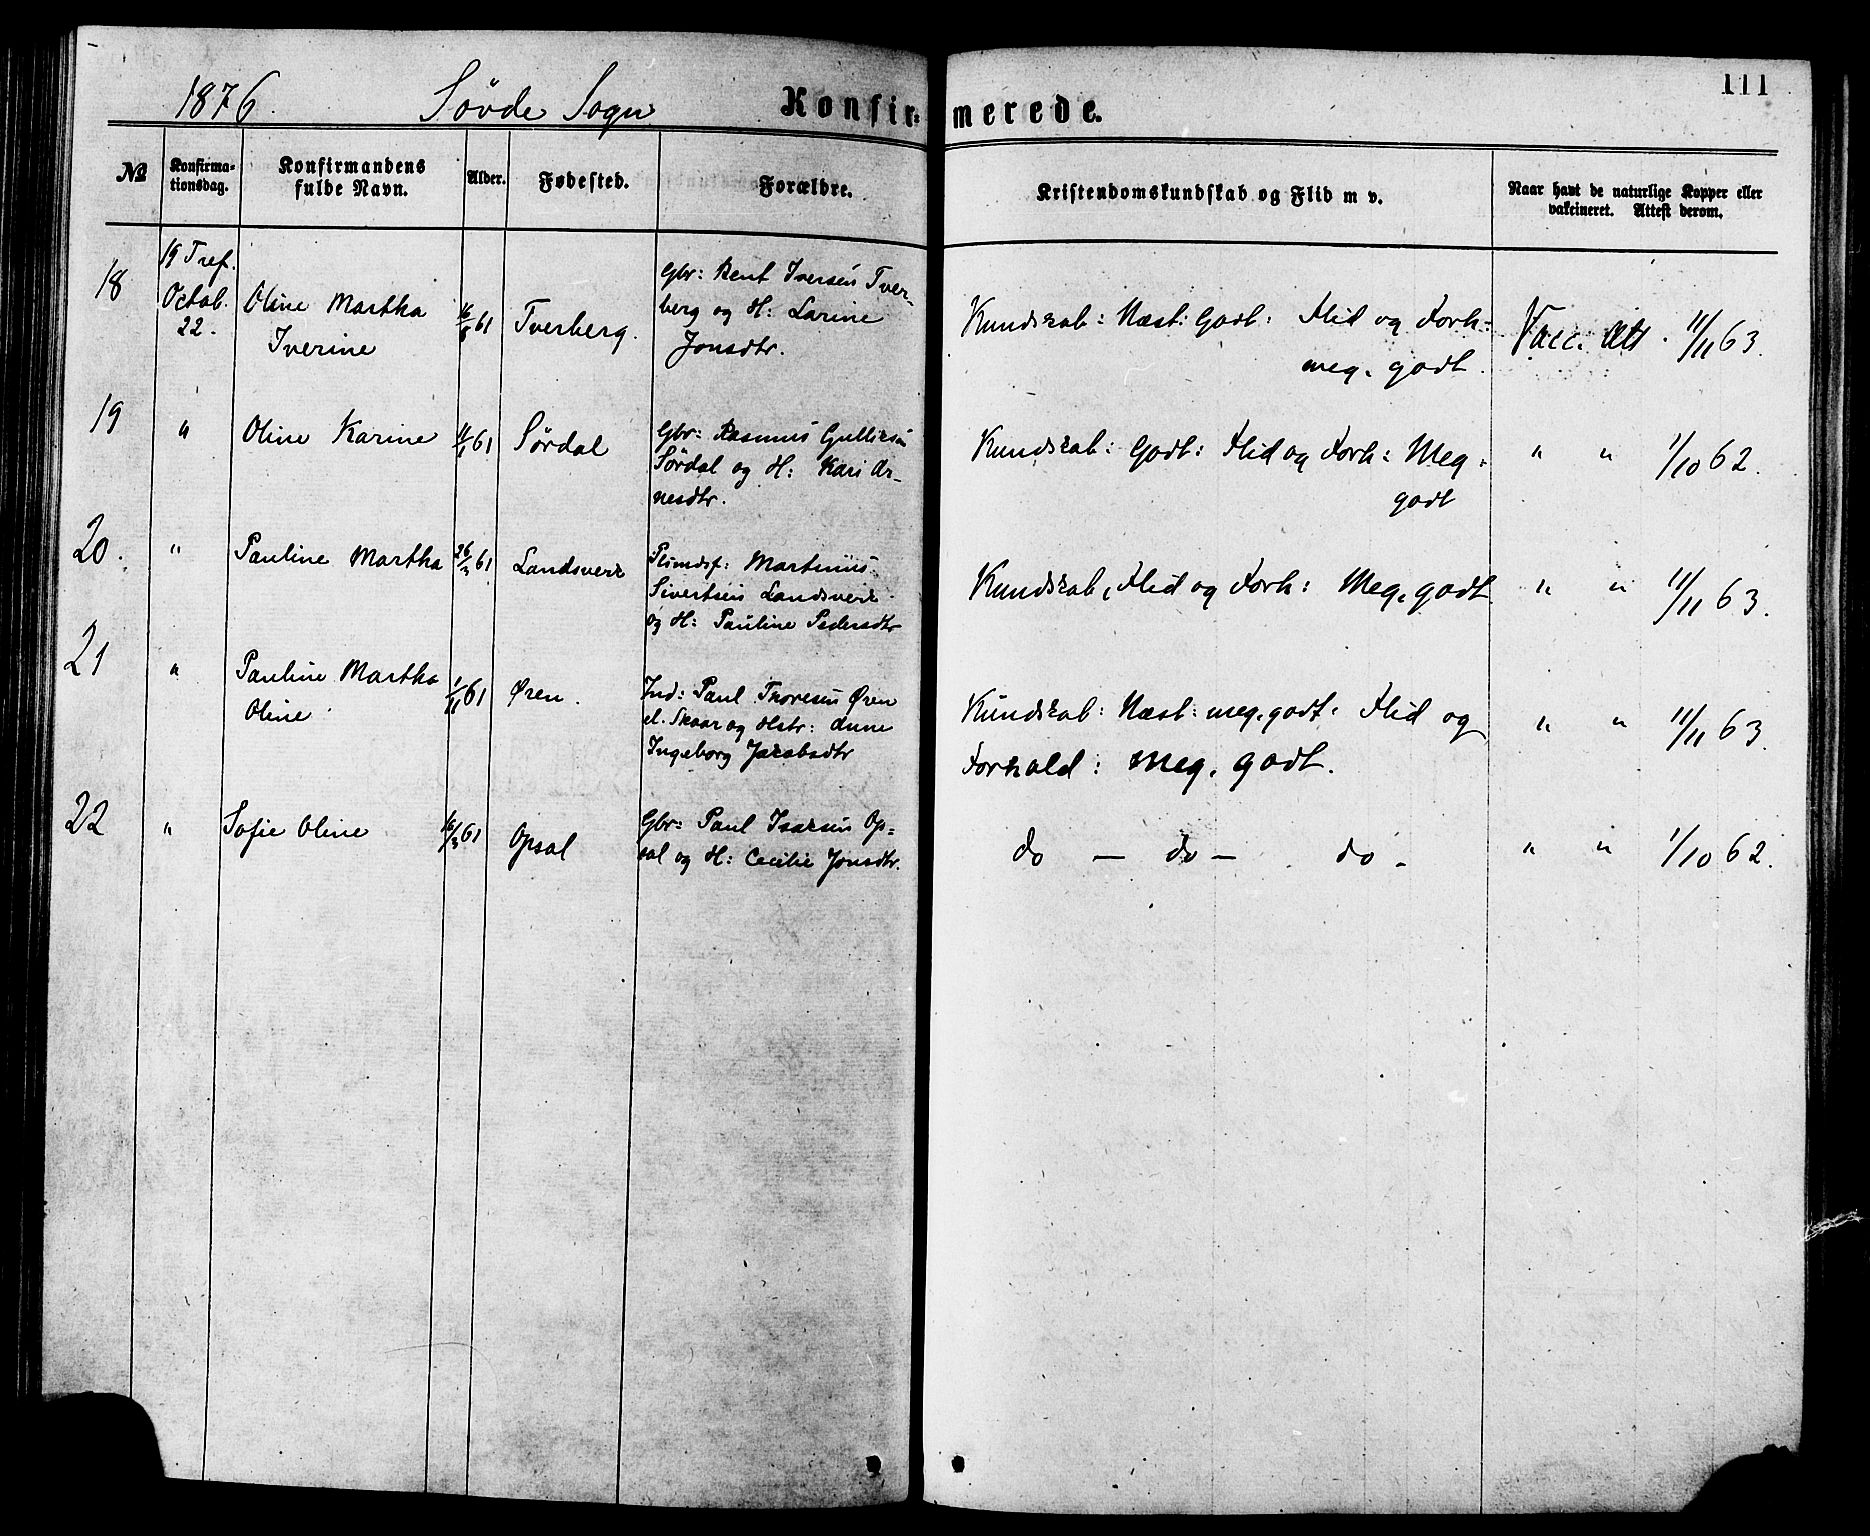 111
1876. Sövde Sogn Konfir- merede.
№ Konfirma-
tionsdag. Konfirmandens
fulde Navn. Alder. Fødested. Forældre. Kristendomskundskab og Flid m v. Naar havt de naturlige Kopper eller
vakcineret. Attest derom.
18 19 Tref.
Octob.
22. Oline Martha
Iverine 61 Tverberg. Gbr: Bent Iversen Tver-
berg og H: Larine
Jonsdtr. Kundskab: Næst: Godt: Flid og Forh:
meg. godt. Vacc. att. 11/11 63.
19 " Oline Karine 61 Sördal Gbr: Rasmus Gulliksen
Sördal og H: Kari Ar-
nesdtr. Kundskab: Godt: Flid og Forh: Meg.
godt " " 1/10 62.
20. " Pauline Martha 26/3 61 Landsverk Martinus
Sivertsen Landsverk
og H: Pauline Pedersdtr Kundskab, Flid og Forh: Meg. godt. " " 11/11 63.
21 " Pauline Martha
Oline 1/11 61 Øren. Ind: Paul Thoresen Øren
el. Skaar og Hstr: Anne
Ingeborg Jakobsdtr Kundskab: Næst: meg. godt. Flid og
Forhold: meg. godt. " " 11/11 63.
22 " Sofie Oline 16/3 61 Opsal Gbr: Paul Isaksen Op-
sal og H: Cecilie Jonsdtr. do — do — do - " " 1/10 62.